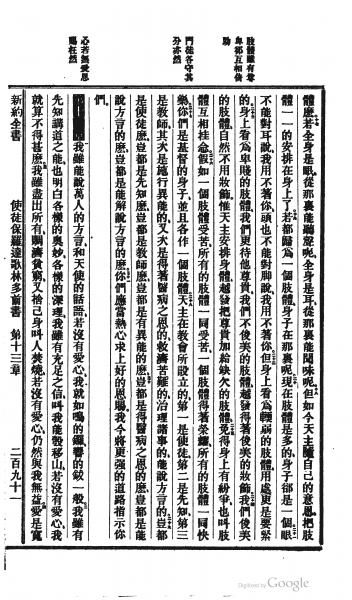 肢體雖有尊
卑卻互相倚
助
門徒各守其
分亦然
心若無愛恩
賜枉然
體麼若全身是眼從那裏能聽聲呢全身是耳從那裏能聞味呢但如今天主隨自己的意思把肢
體一一的安排在身上了若都歸為一個肢體身子在那裏呢現在肢體是多的身子卻是一個眼
不能對手說我用不著你頭也不能對腳說我用不著你但身上看為輭弱的肢體用處更是要緊
的身上看為卑賤的肢體我們更待他尊貴我們不俊美的肢體越發得著俊美的妝飾我們俊美
的肢體自然不用妝飾惟天主安排身體越發把尊貴加給缺欠的肢體免得身上有紛爭也叫肢
體互相挂念假如一個肢體受苦所有的肢體一同受苦一個肢體得著榮耀所有的肢體一同快
樂你們是基督的身子並且各作一個肢體天主在教會所設立的第一是使徒第二是先知第三
是教師其次是施行異能的又次是得著醫病之恩的救濟苦難的治理諸事的能說方言的豈都
是使徒麼豈都是先知麼豈都是教師麼豈都是有異能的麼豈都是得醫病之恩的麼豈都是能
說方言的麼豈都是能解說方言的麼你們應當熱心求上好的恩賜我今將更强的道路指示你
們
我雖能說萬人的方言和天使的話語若沒有愛心我就如鳴的鑼響的鈸一般我雖有
先知講道之能也明白各樣的奧妙各樣的深理我雖有充足之信叫我能彀移山若沒有愛心我
就算不得甚麼我雖盡出所有賙濟貧窮又捨己身叫人焚燒若沒有愛心仍然與我無益愛是寬
新約全書 使徒保羅達歌林多前書 第十三章 二百九十一
Digitized by Google